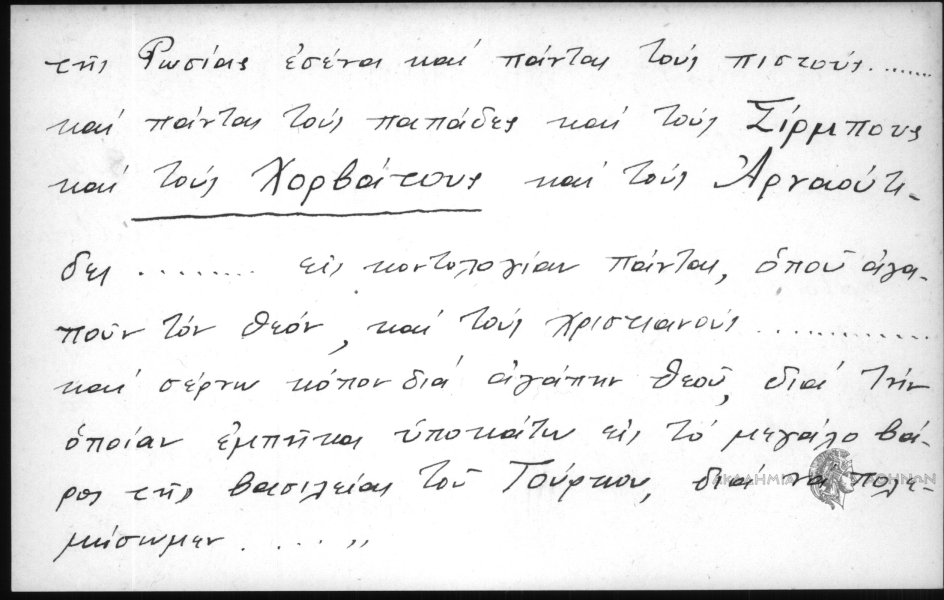 τῆς Ρωσίας ἐσένα καί πάντας τούς πιστούς........
καί πάντας τούς παπάδες καί τούς Σίρμπους
καί τούς Χορβάτους καί τούς Ἀρναούτι-
δες ......... εἰς κοντολογίαν πάντας, ὁποῦ ἀγα-
ποῦν τόν θεόν, καί τούς χριστιανούς .............
καί σέρνω κόπον διά ἀγάπην θεοῦ, διά τήν
ὁποίαν ἐμπῆκα ὑποκάτω εἰς τό μεγάλο βά-
ρος τῆς βασιλείας τοῦ Τούρκου, διά νά πολε-
μήσωμεν . . . . ,,
ΑΚΑΔΗΜΙΑ ΑΘΗΝΩΝ